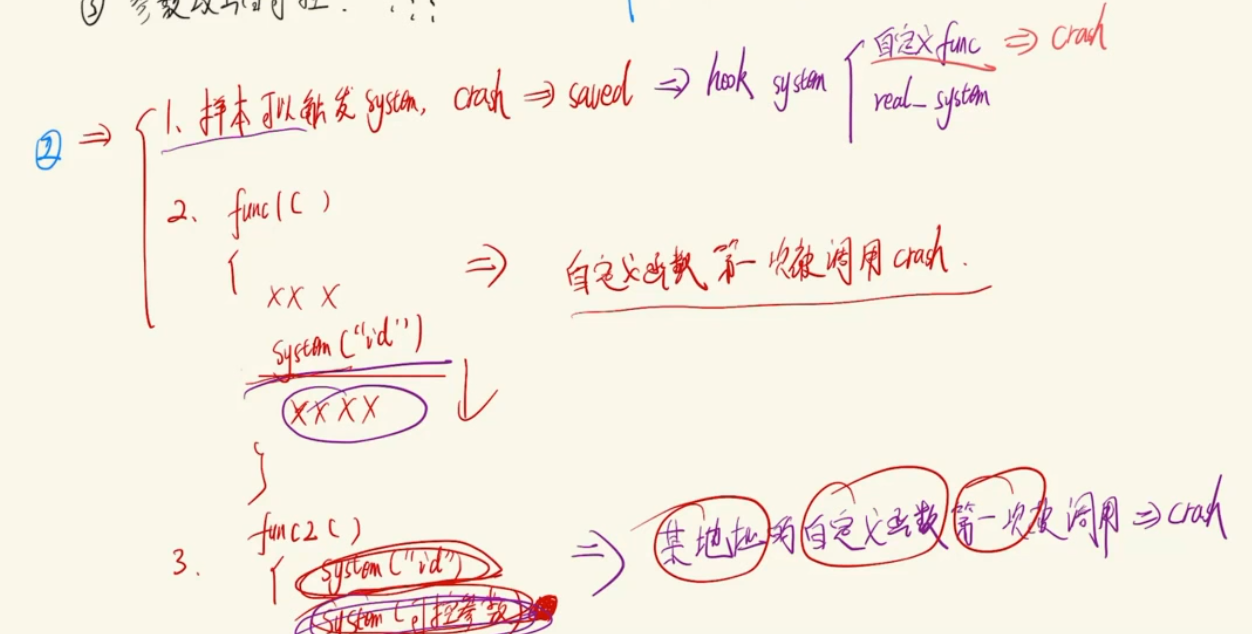 ③ 参数
② ⇒ 1、样本可以触发 system, crash ⇒ saved ⇒ hook system { 自定义func ⇒ crash
real_system
2、 func1( )
{
XX X
system("id")
XXXX
}
⇒ 自定义函数第一次被调用 crash.
3、 func2( )
{ system("id")
system(可控参数)
⇒ 某地址的自定义函数第一次被调用 ⇒ crash